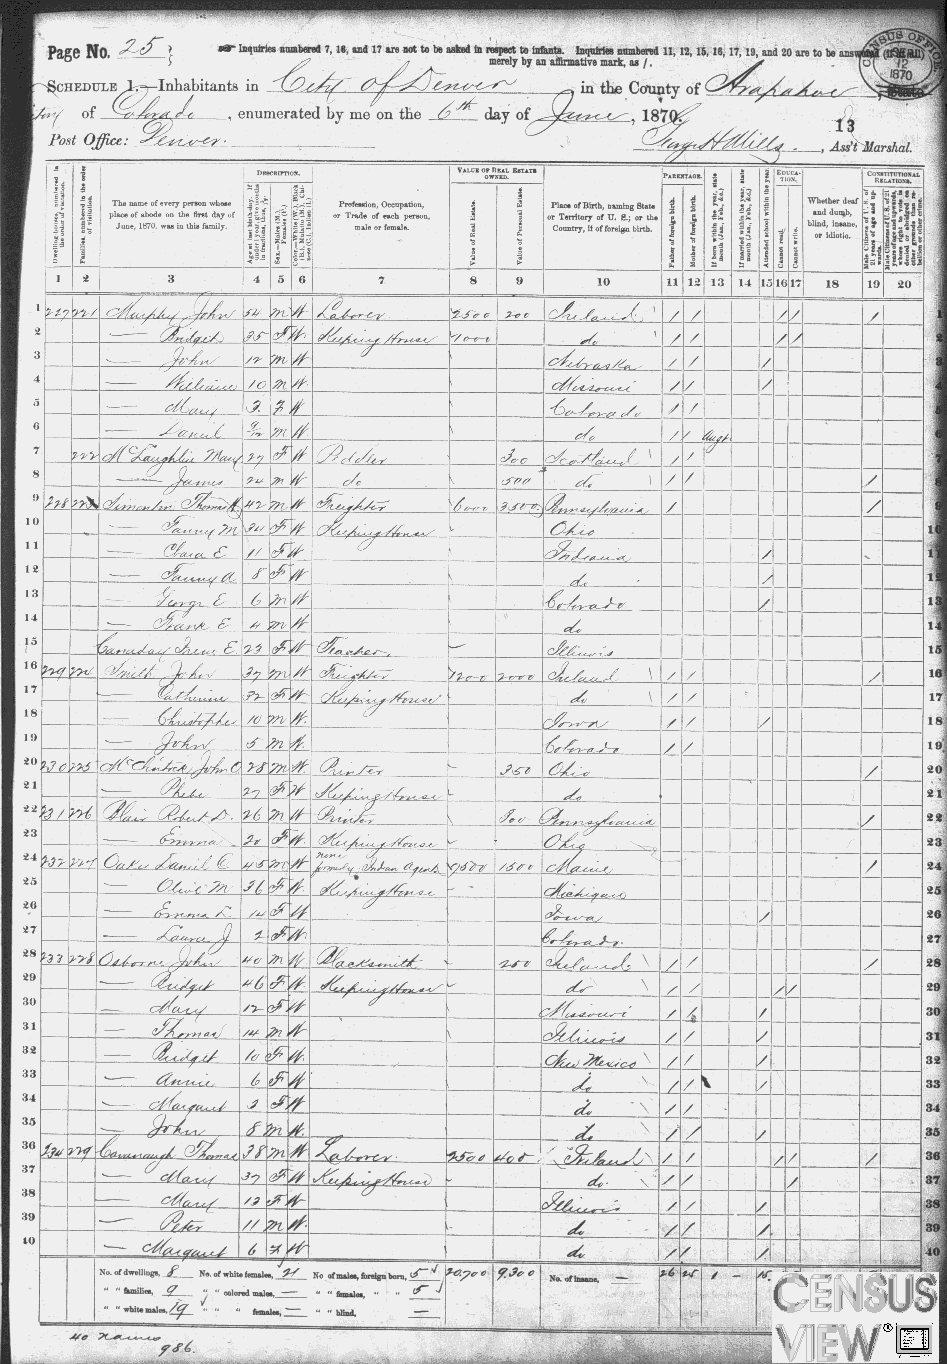 Page No. 25
Inquiries numbered 7, 16, and 17 are not to be asked in respect to infants. Inquiries numbered 11, 12, 15, 16, 17, 19, and 20 are to be answered (if at all)
merely by an affirmative mark, as /.
CENSUS OFFICE
12
1870
SCHEDULE 1.—Inhabitants in City of Denver, in the County of Arapahoe, State
of Colorado, enumerated by me on the 6th day of June, 1870.
13
Post Office: Denver. H Mills, Ass't Marshal.
DESCRIPTION. VALUE OF REAL ESTATE OWNED. PARENTAGE. EDUCATION. CONSTITUTIONAL RELATIONS.
Dwelling-houses, numbered in the order of visitation.
Families, numbered in the order of visitation.
The name of every person whose place of abode on the first day of June, 1870, was in this family.
Age at last birth-day. If under 1 year, give months in fractions, thus, 3/12
Sex.—Males (M.), Females (F.)
Color.—White (W.), Black (B.), Mulatto (M.), Chinese (C.), Indian (I.)
Profession, Occupation, or Trade of each person, male or female.
Value of Real Estate.
Value of Personal Estate.
Place of Birth, naming State or Territory of U. S.; or the Country, if of foreign birth.
Father of foreign birth.
Mother of foreign birth.
If born within the year, state month (Jan., Feb., &c.)
If married within the year, state month (Jan., Feb., &c.)
Attended school within the year.
Cannot read.
Cannot write.
Whether deaf and dumb, blind, insane, or idiotic.
Male Citizens of U. S. of 21 years of age and upwards.
Male Citizens of U. S. of 21 years of age and upwards, whose right to vote is denied or abridged on other grounds than rebellion or other crime.
1 2 3 4 5 6 7 8 9 10 11 12 13 14 15 16 17 18 19 20
1 227 221 Murphy John 54 M W Laborer 2500 200 Ireland / / / / / 1
2 — Bridget 35 F W Keeping House 1000 do / / / / 2
3 — John 12 M W Nebraska / / / 3
4 — William 10 M W Missouri / / / 4
5 — Mary 3 F W Colorado / / 5
6 — Daniel 9/12 M W do / / Augt 6
7 222 McLaughlin Mary 27 F W Peddler 300 Scotland / / 7
8 — James 24 M W do 500 do / / / 8
9 228 223 Simonton Thomas 42 M W Freighter 6000 3500 Pennsylvania / / 9
10 — Fanny M 34 F W Keeping House Ohio 10
11 — Clara E 11 F W Indiana / 11
12 — Fanny A 8 F W do / 12
13 — George E 6 M W Colorado / 13
14 — Frank E 4 M W do 14
15 Canaday Irene E 23 F W Teacher Illinois 15
16 229 224 Smith John 37 M W Freighter 1200 2000 Ireland / / / 16
17 — Catherine 32 F W Keeping House do / / 17
18 — Christopher 10 M W Iowa / / / 18
19 — John 5 M W Colorado / / 19
20 230 225 McClintock John O 28 M W Printer 350 Ohio / 20
21 — Phebe 27 F W Keeping House do 21
22 231 226 Blair Robert D. 26 M W Printer 800 Pennsylvania / 22
23 — Emma 20 F W Keeping House Ohio 23
24 232 227 Oakes Daniel C 45 M W none formerly Indian Agent 7500 1500 Maine / 24
25 — Olive M 36 F W Keeping House Michigan 25
26 — Emma L 14 F W Iowa / 26
27 — Laura J 2 F W Colorado 27
28 233 228 Osborne John 40 M W Blacksmith 250 Ireland / / / 28
29 — Bridget 46 F W Keeping House do / / / / 29
30 — Mary 12 F W Missouri / / / 30
31 — Thomas 14 M W Illinois / / / 31
32 — Bridget 10 F W New Mexico / / / 32
33 — Annie 6 F W do / / / 33
34 — Margaret 2 F W do / / 34
35 — John 8 M W do / / / 35
36 234 229 Cavanaugh Thomas 38 M W Laborer 2500 400 Ireland / / / / / 36
37 — Mary 37 F W Keeping House do / / / 37
38 — Mary 13 F W Illinois / / / 38
39 — Peter 11 M W do / / / 39
40 — Margaret 6 F W do / / / 40
No. of dwellings, 8 No. of white females, 21 No of males, foreign born, 5 20,700 9,300 No. of insane, — 26 25 1 — 15
" " families, 9 " " colored males, — " " females, " " 5
" " white males, 19 " " " females, — " " blind, —
40 names
986.
CENSUS
VIEW®